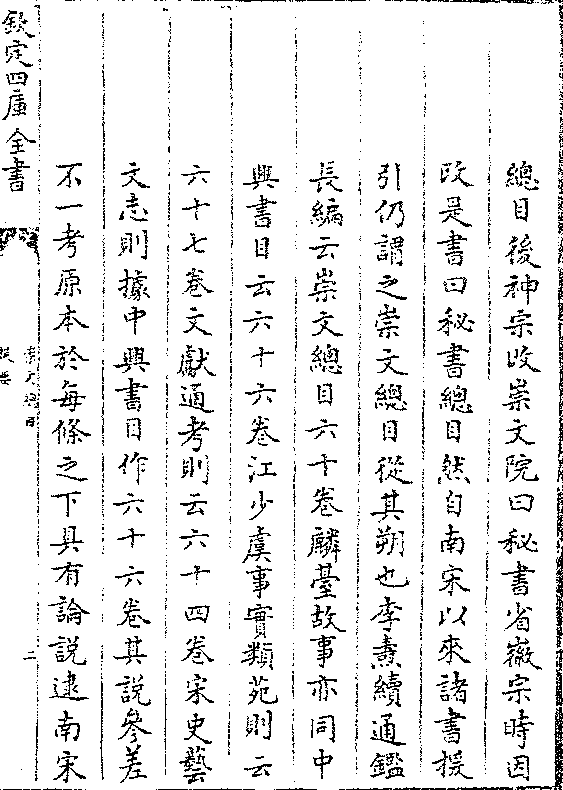 總目後神宗改崇文院曰秘書省徽宗時因
改是書曰秘書總目然自南宋以來諸書援
引仍謂之崇文總目從其朔也李燾續通鑑
長編云崇文總目六十卷麟臺故事亦同中
興書目云六十六卷江少虞事實類苑則云
六十七卷文獻通考則云六十四卷宋史藝
文志則據中興書目作六十六卷其說參差
不一考原本於每條之下具有論說逮南宋
欽定四庫全書
崇文總目
提要
二